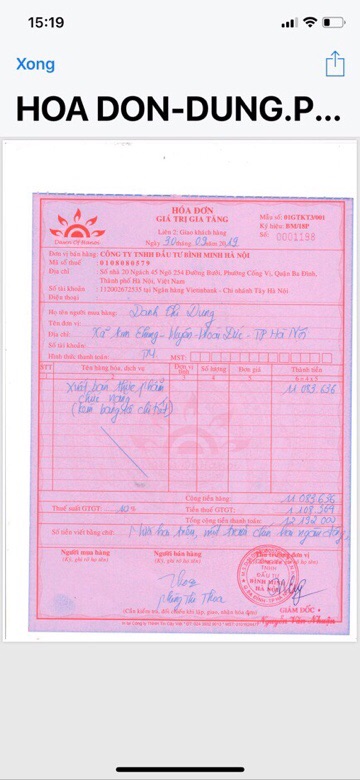 15:19
Xong
HOA DON-DUNG.P...
HÓA ĐƠN
GIÁ TRỊ GIA TĂNG
Liên 2: Giao khách hàng
Ngày 30 tháng 03 năm 2019
Mẫu số: 01GTKT3/001
Ký hiệu: BM/18P
Số: 0001198
Đơn vị bán hàng: CÔNG TY TNHH ĐẦU TƯ BÌNH MINH HÀ NỘI
Mã số thuế : 0108080579
Địa chỉ : Số nhà 20 Ngách 45 Ngõ 254 Đường Bưởi, Phường Cống Vị, Quận Ba Đình,
Thành phố Hà Nội, Việt Nam
Số tài khoản : 112002672535 tại Ngân hàng Vietinbank - Chi nhánh Tây Hà Nội
Điện thoại :
Họ tên người mua hàng: Danh Chí Dũng
Tên đơn vị:
Địa chỉ: Xã - TP Hà Nội
Số tài khoản:
Hình thức thanh toán: TM MST:
STT Tên hàng hóa, dịch vụ Đơn vị tính Số lượng Đơn giá Thành tiền
Xuất bán thực phẩm 11 083 636
chức năng
(kèm bảng kê chi tiết)
Cộng tiền hàng: 11 083 636
Thuế suất GTGT: 10% Tiền thuế GTGT: 1 108 364
Tổng cộng tiền thanh toán: 12 192 000
Số tiền viết bằng chữ: Mười hai triệu, một trăm chín hai ngàn đồng
Người mua hàng Người bán hàng Thủ trưởng đơn vị
(Ký, ghi rõ họ tên) (Ký, ghi rõ họ tên)
TNHH
ĐẦU TƯ
BÌNH MINH
HÀ NỘI
GIÁM ĐỐC
Nguyễn Văn Nhuận
(Cần kiểm tra, đối chiếu khi lập, giao, nhận hóa đơn)